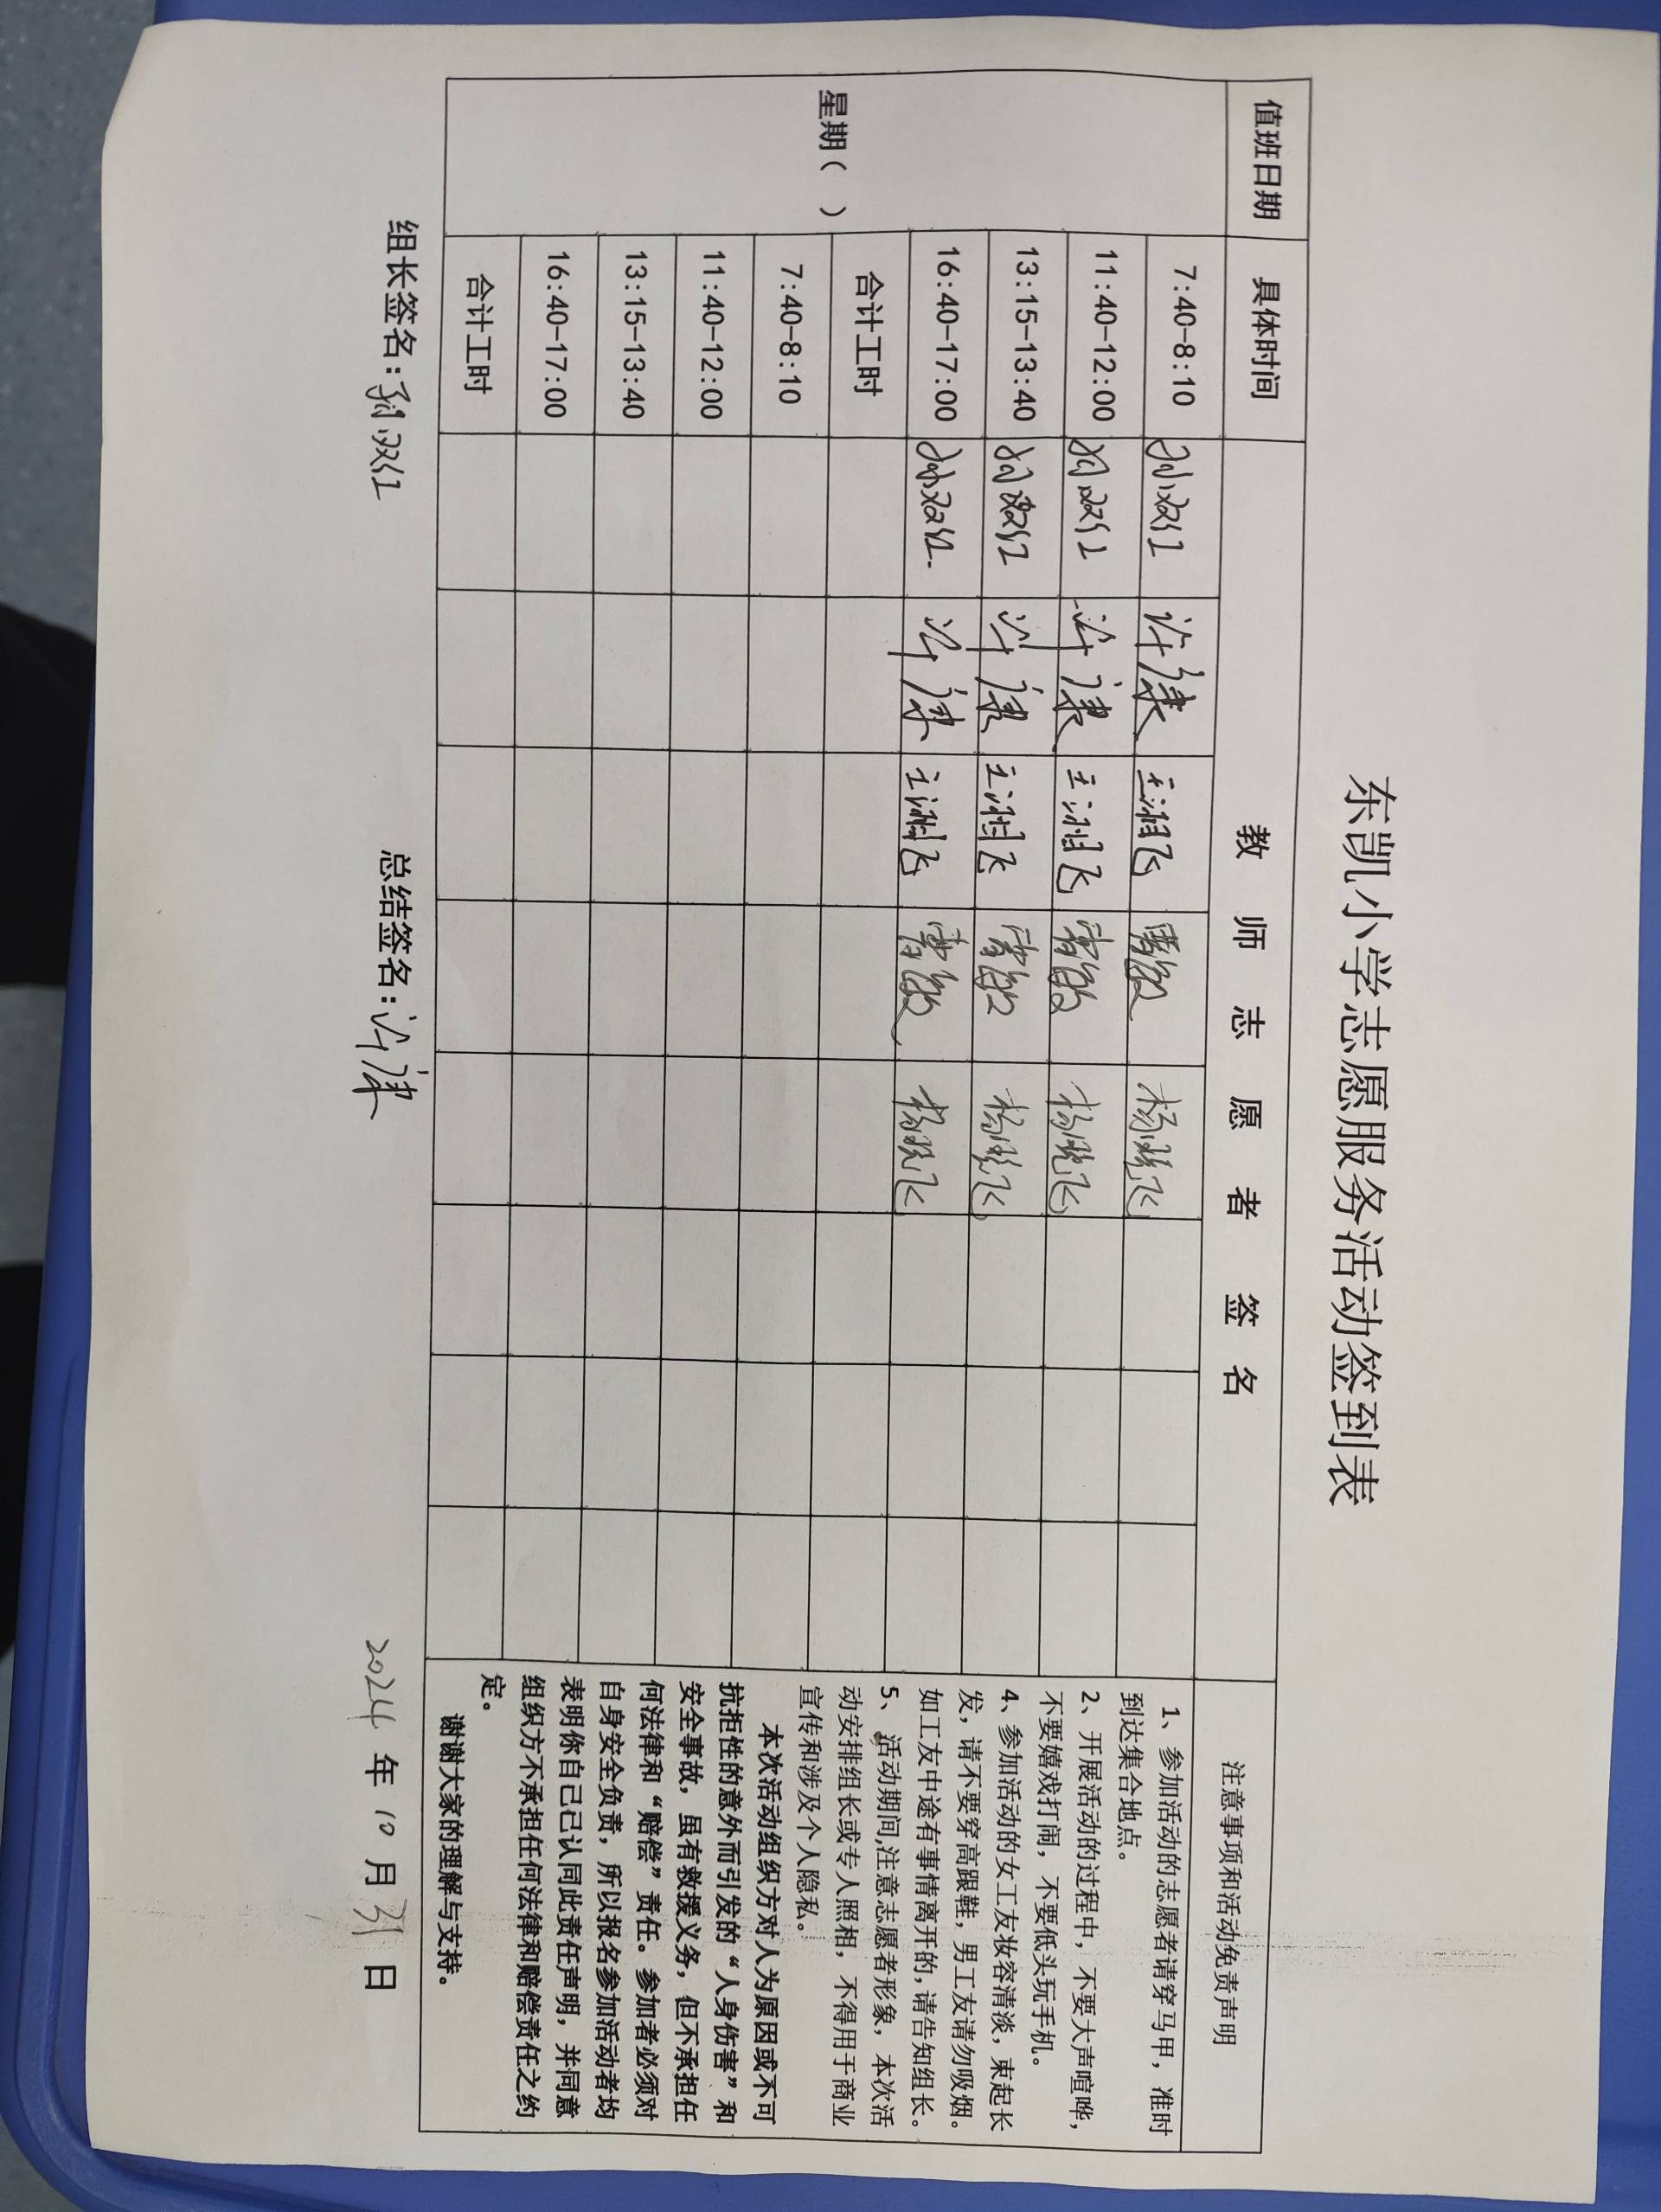 东凯小学志愿服务活动签到表
值班日期 具体时间 教师志愿者签名 注意事项和活动免责声明
星期（ ）
7:40-8:10 孙双红 许康 王湘飞 曹敏 杨晓飞
11:40-12:00 孙双红 许康 王湘飞 曹敏 杨晓飞
13:15-13:40 孙双红 许康 王湘飞 曹敏 杨晓飞
16:40-17:00 孙双红 许康 王湘飞 曹敏 杨晓飞
合计工时
7:40-8:10
11:40-12:00
13:15-13:40
16:40-17:00
合计工时
1、参加活动的志愿者请穿马甲，准时
到达集合地点。
2、开展活动的过程中，不要大声喧哗，
不要嬉戏打闹，不要低头玩手机。
4、参加活动的女工友妆容清淡，束起长
发，请不要穿高跟鞋，男工友请勿吸烟。
如工友中途有事情离开的，请告知组长。
5、活动期间,注意志愿者形象，本次活
动安排组长或专人照相，不得用于商业
宣传和涉及个人隐私。
本次活动组织方对人为原因或不可
抗拒性的意外而引发的“人身伤害”和
安全事故，虽有救援义务，但不承担任
何法律和“赔偿”责任。参加者必须对
自身安全负责，所以报名参加活动者均
表明你自己已认同此责任声明，并同意
组织方不承担任何法律和赔偿责任之约
定。
谢谢大家的理解与支持。
组长签名：孙双红 总结签名：许康 2024年10月31日